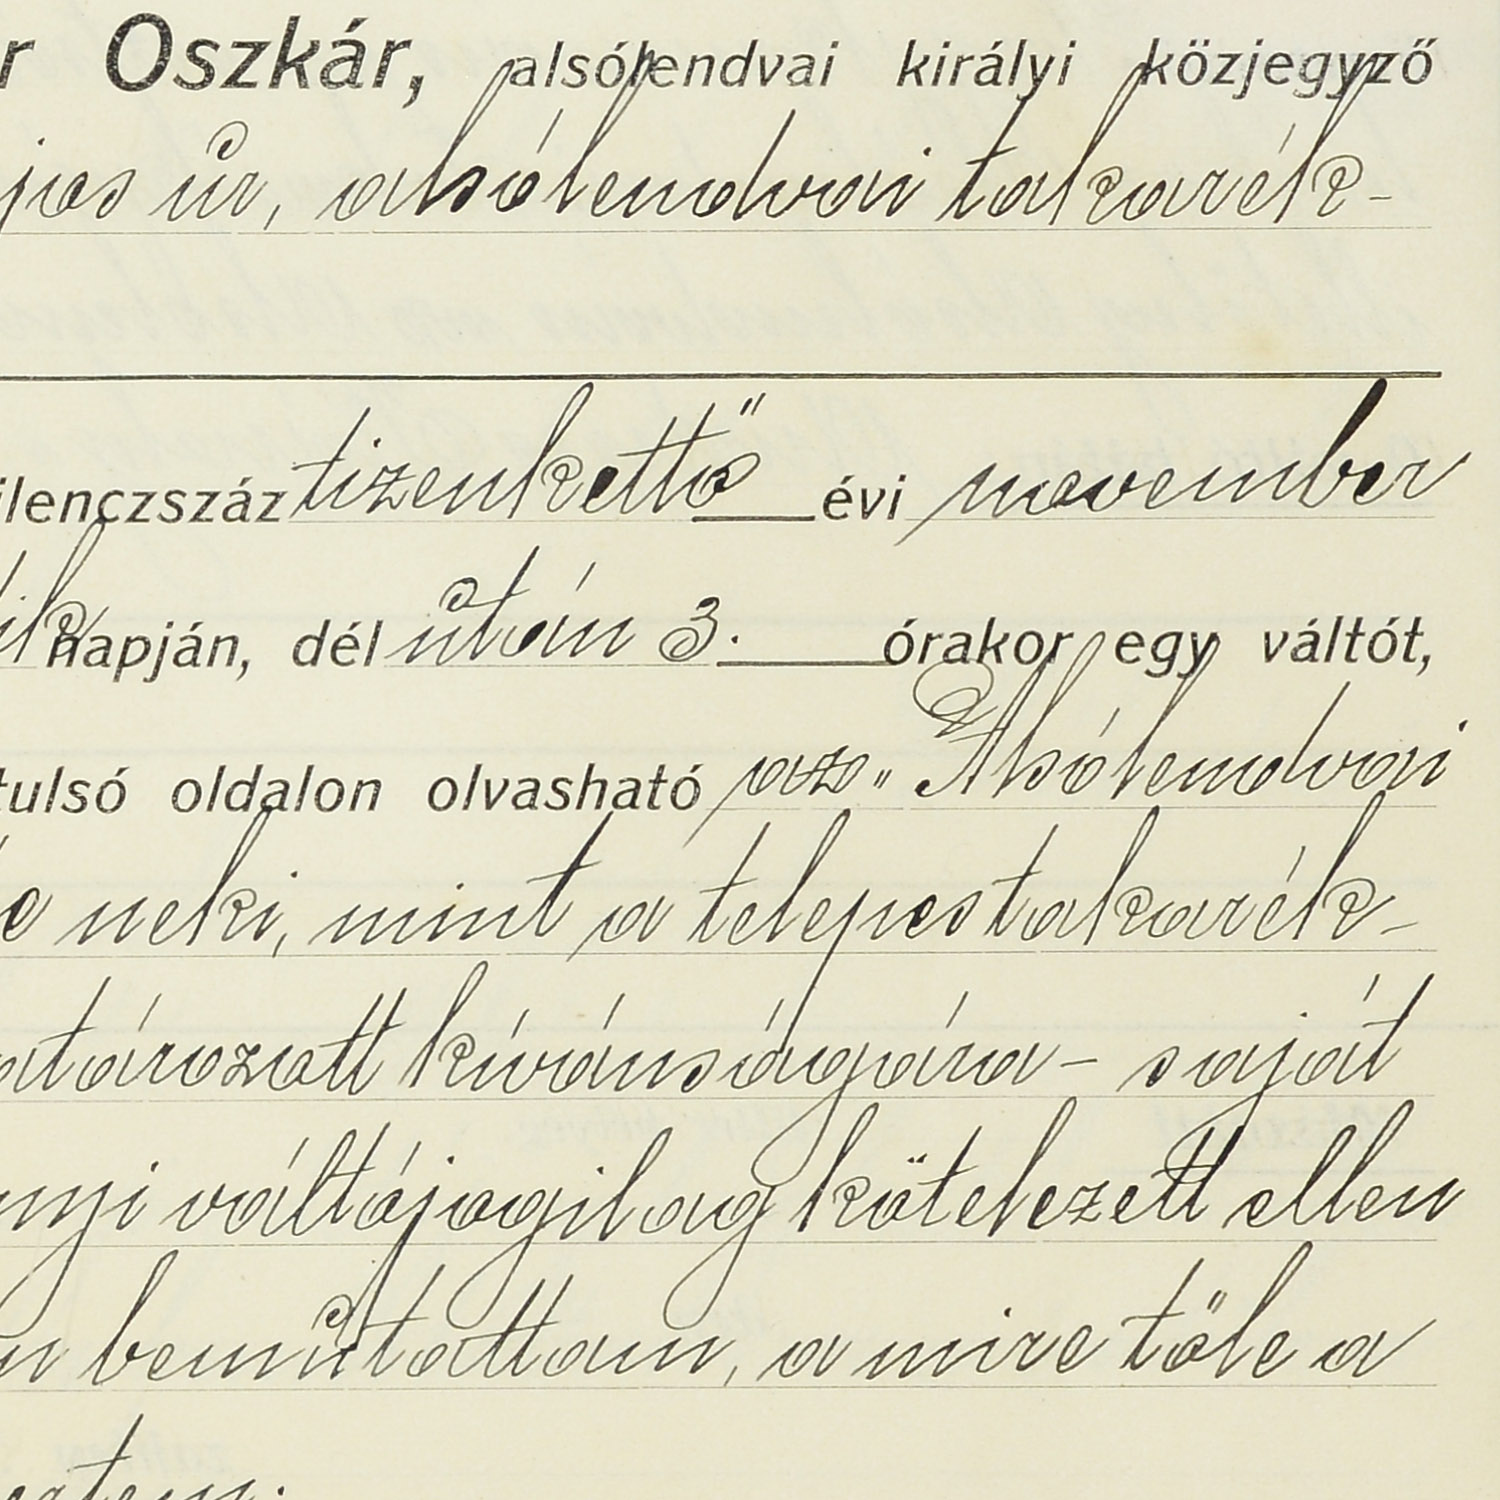 r Oszkár, alsólendvai királyi közjegyző
jos úr, alsólendvai takarék-
ilenczszáz tizenkettő évi november
ik napján, dél után 3. órakor egy váltót,
tulsó oldalon olvasható az „Alsólendvai
neki, mint a telepestakarék-
atározott kívánságára - saját
nyi váltójogilag kötelezett ellen
n bemutattam, a mire tőle a